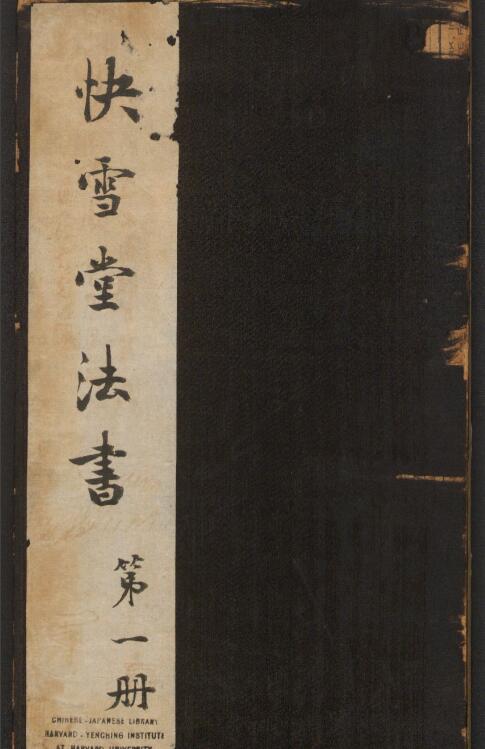 快雪堂法書
第一册
CHINESE-JAPANESE LIBRARY
HARVARD-YENCHING INSTITUTE
AT HARVARD UNIVERSITY